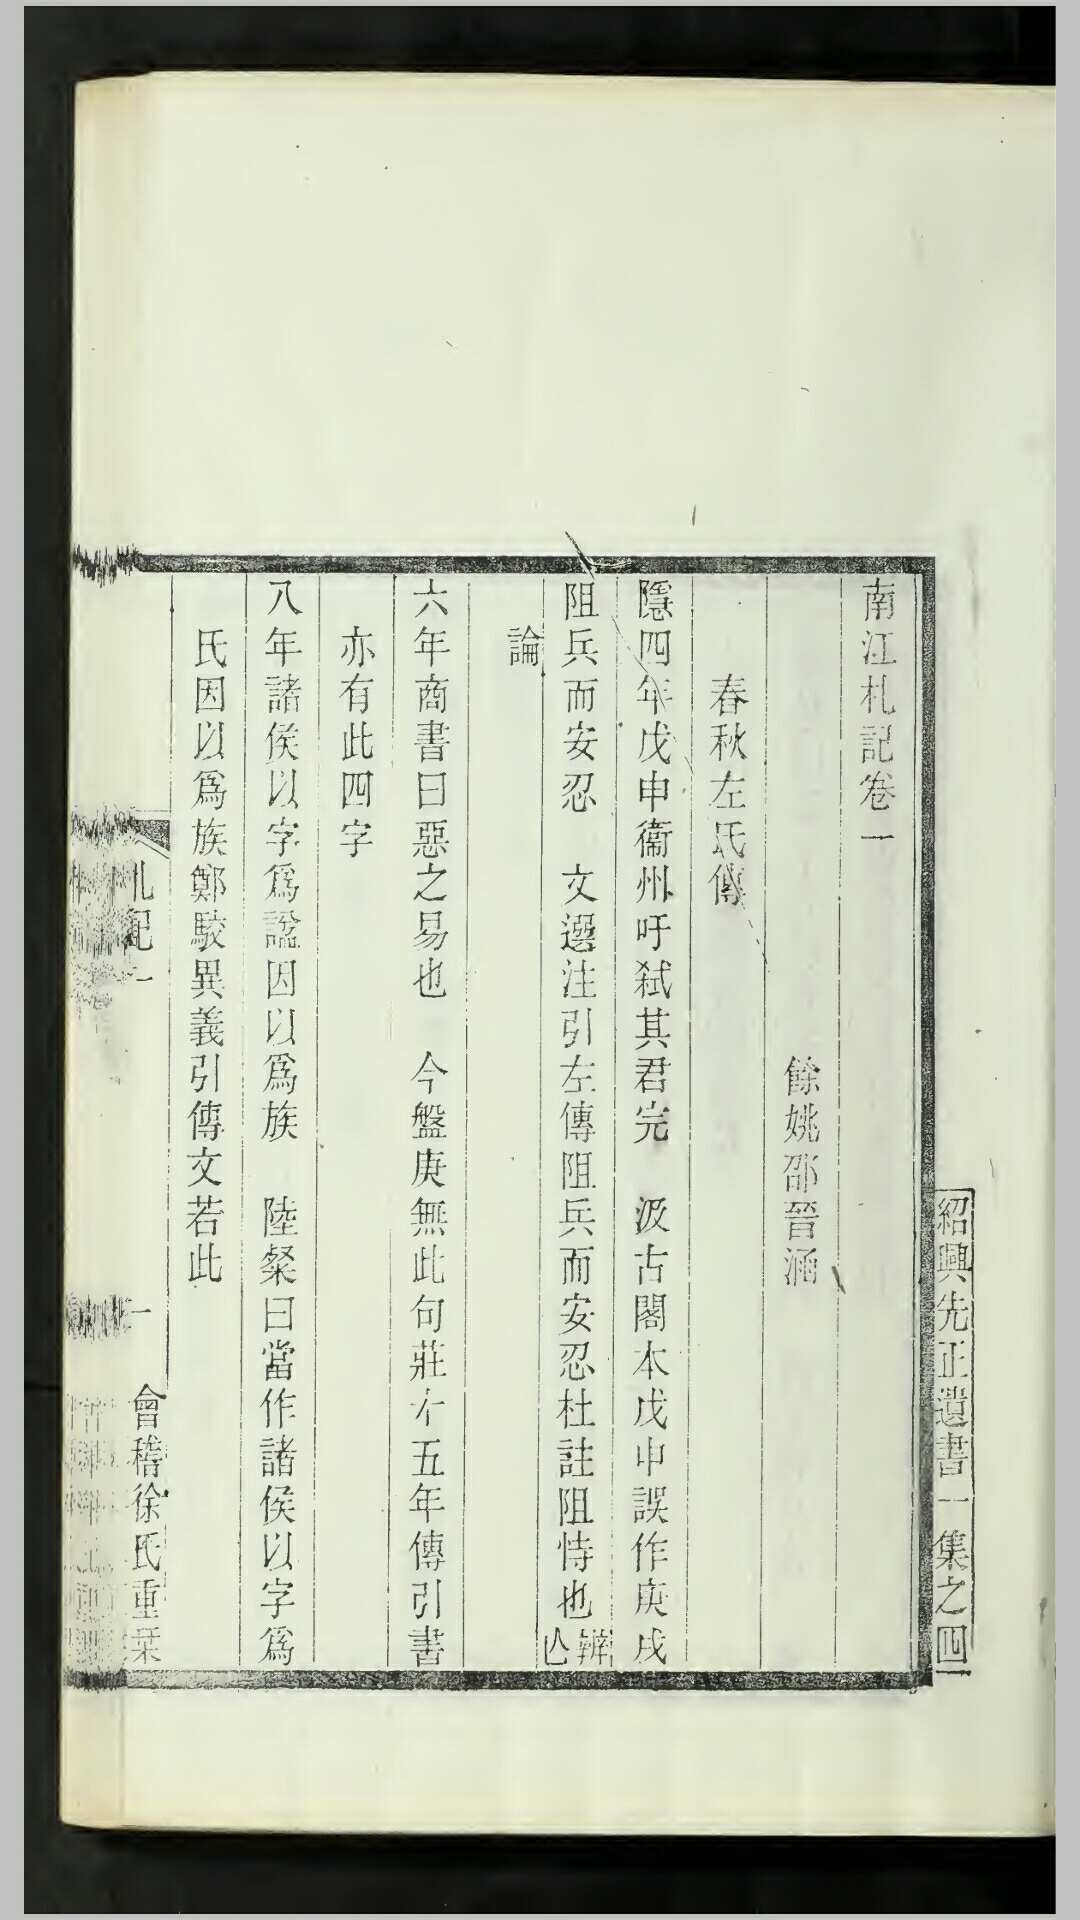 紹興先正遺書一集之四
南江札記卷一
餘姚邵晉涵
春秋左氏傳
隱四年戊申衞州吁弒其君完　汲古閣本戊申誤作庚戌
阻兵而安忍　文選注引左傳阻兵而安忍杜註阻恃也辨亾
論
六年商書曰惡之易也　今盤庚無此句莊十五年傳引書
亦有此四字
八年諸侯以字爲諡因以爲族　陸粲曰當作諸侯以字爲
氏因以爲族鄭駮異義引傳文若此
札記一　一　會稽徐氏重栞